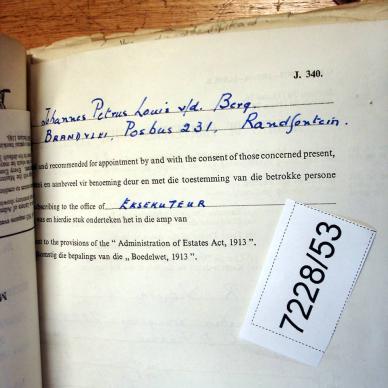 J. 340.
Johannes Petrus Louis v/d. Berg.
BRANDVLEI, Posbus 231, Randfontein.
and recommended for appointment by and with the consent of those concerned present,
en aanbeveel vir benoeming deur en met die toestemming van die betrokke persone
subscribing to the office of EKSEKUTEUR
was en hierdie stuk onderteken het in die amp van
to the provisions of the “ Administration of Estates Act, 1913 ”.
die bepalings van die „ Boedelwet, 1913 ”.
7228/53